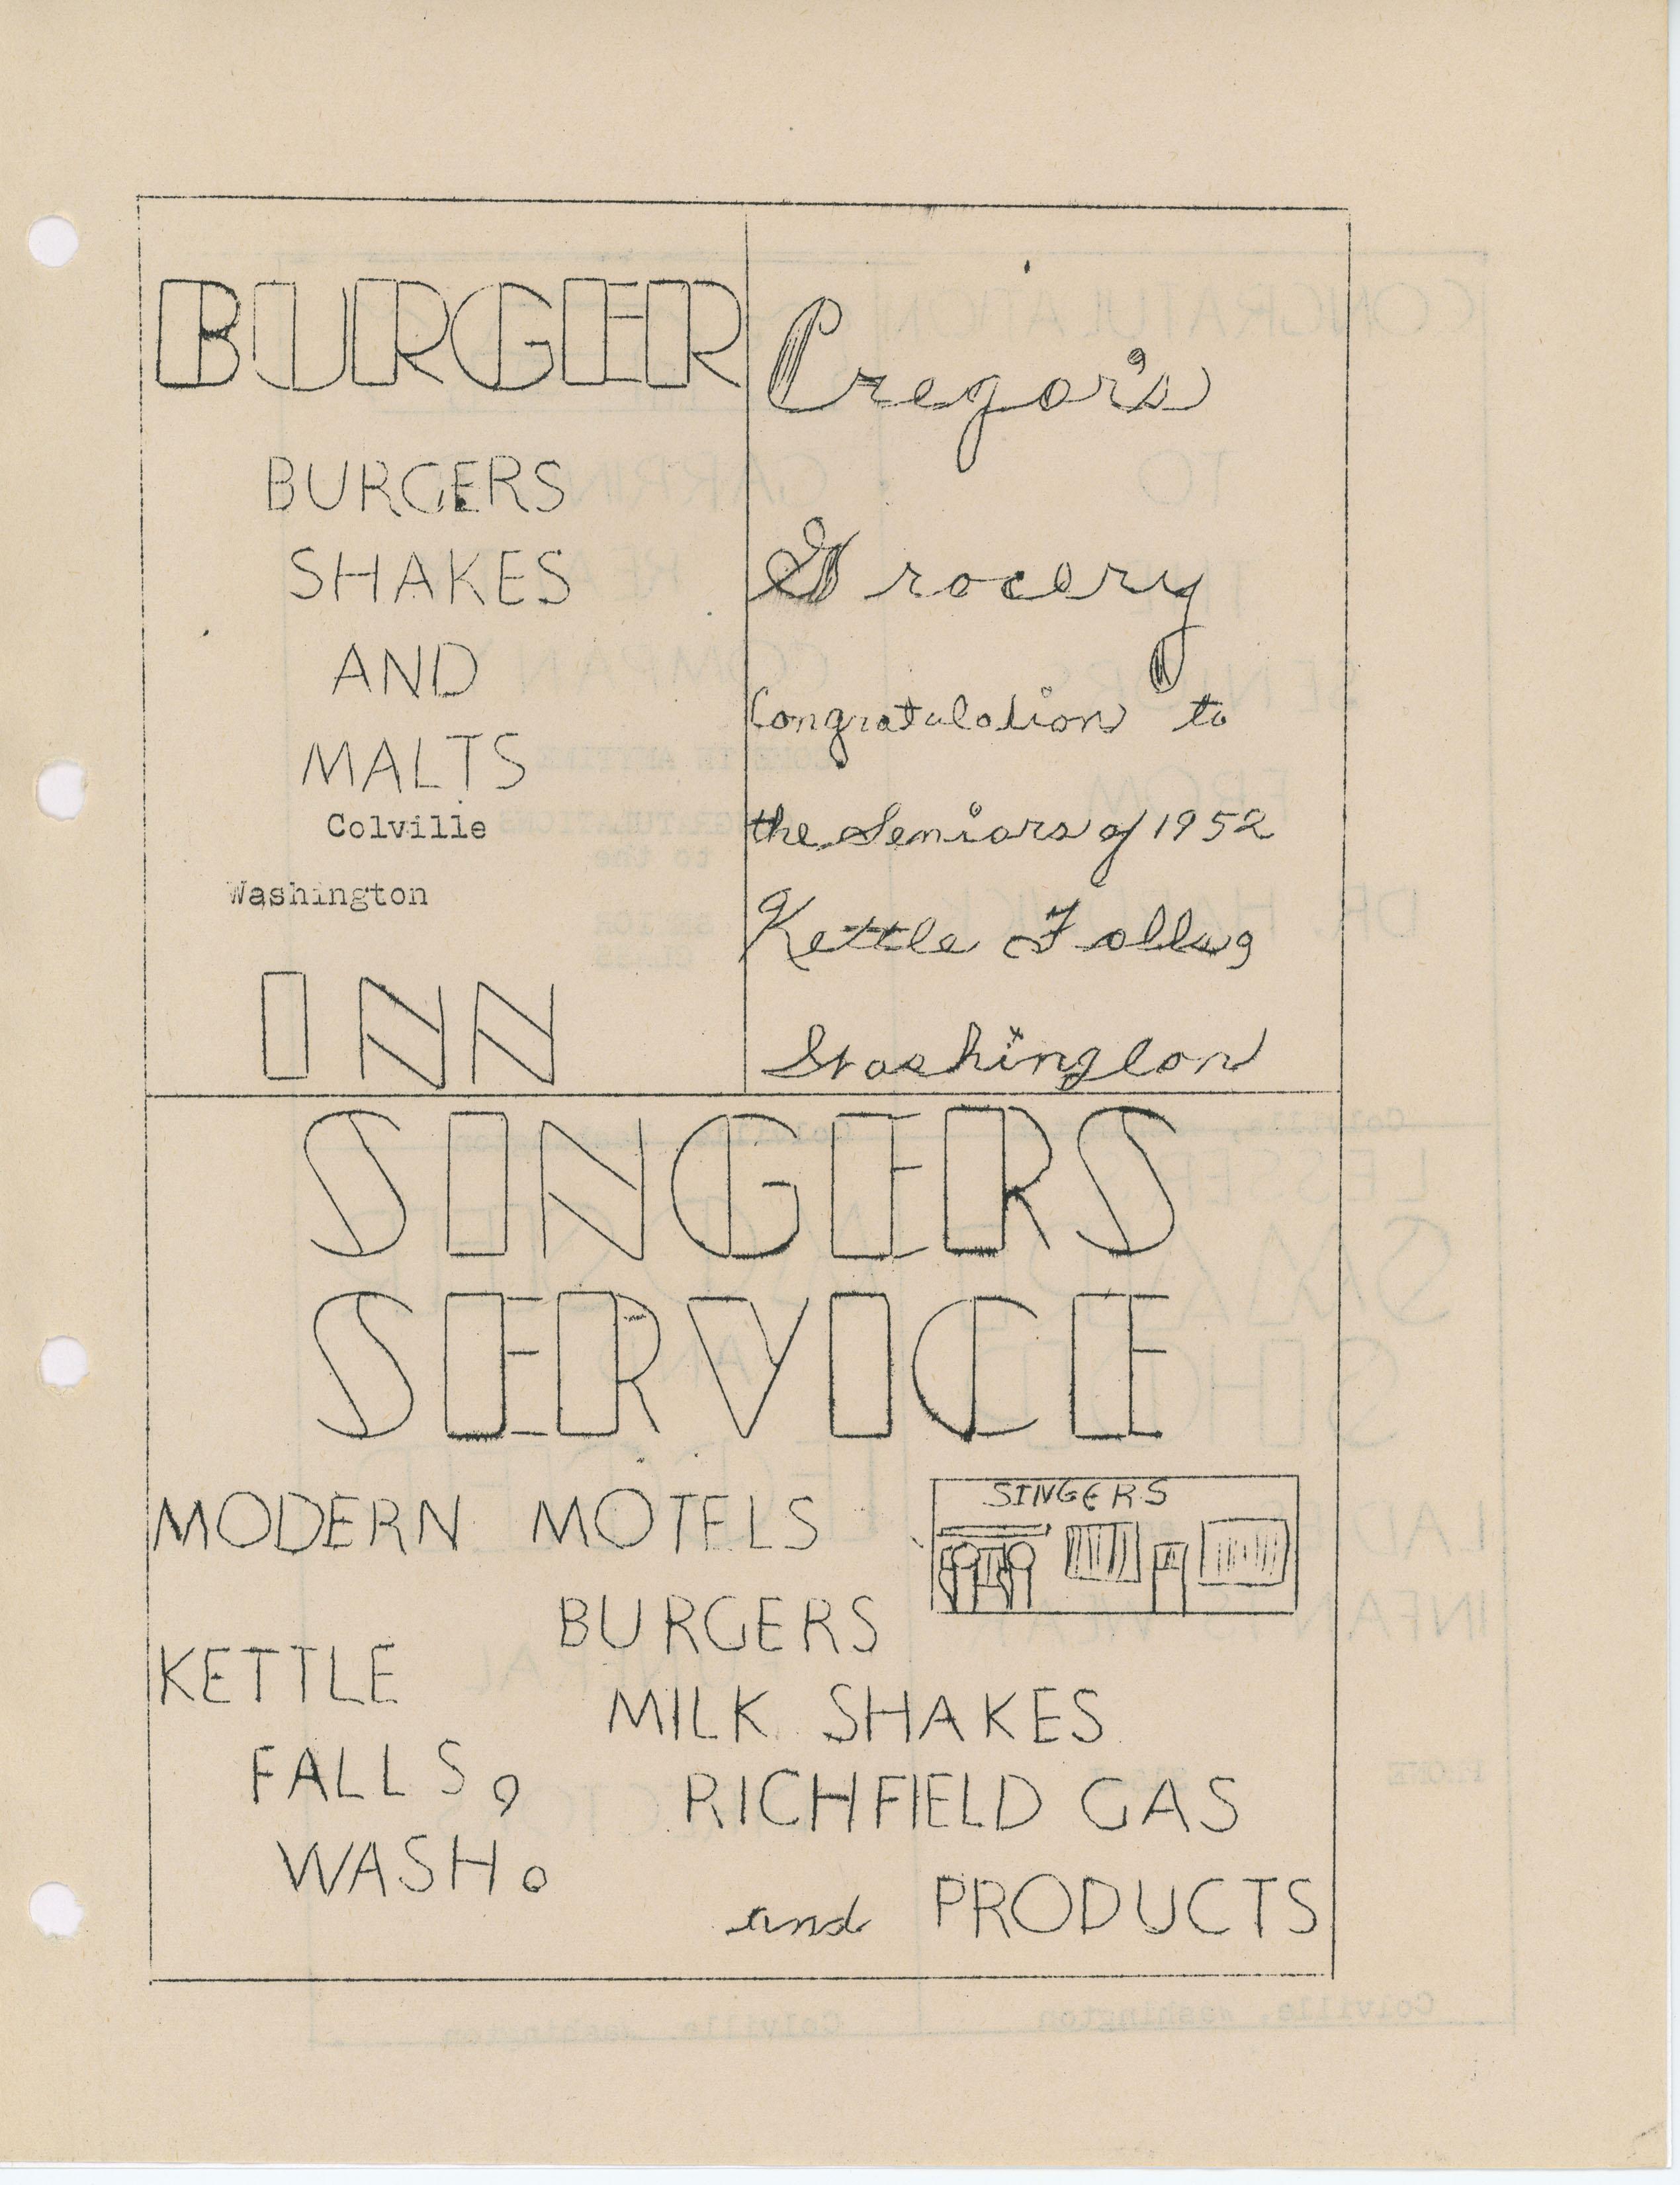 BURGER
BURGERS
SHAKES
AND
MALTS
Colville
Washington
INN
Cregor's
Grocery
Congratulation to
the Seniors of 1952
Kettle Falls,
Washington
SINGERS
SERVICE
SINGERS
MODERN MOTELS
BURGERS
MILK SHAKES
RICHFIELD GAS
and PRODUCTS
KETTLE
FALLS,
WASH.